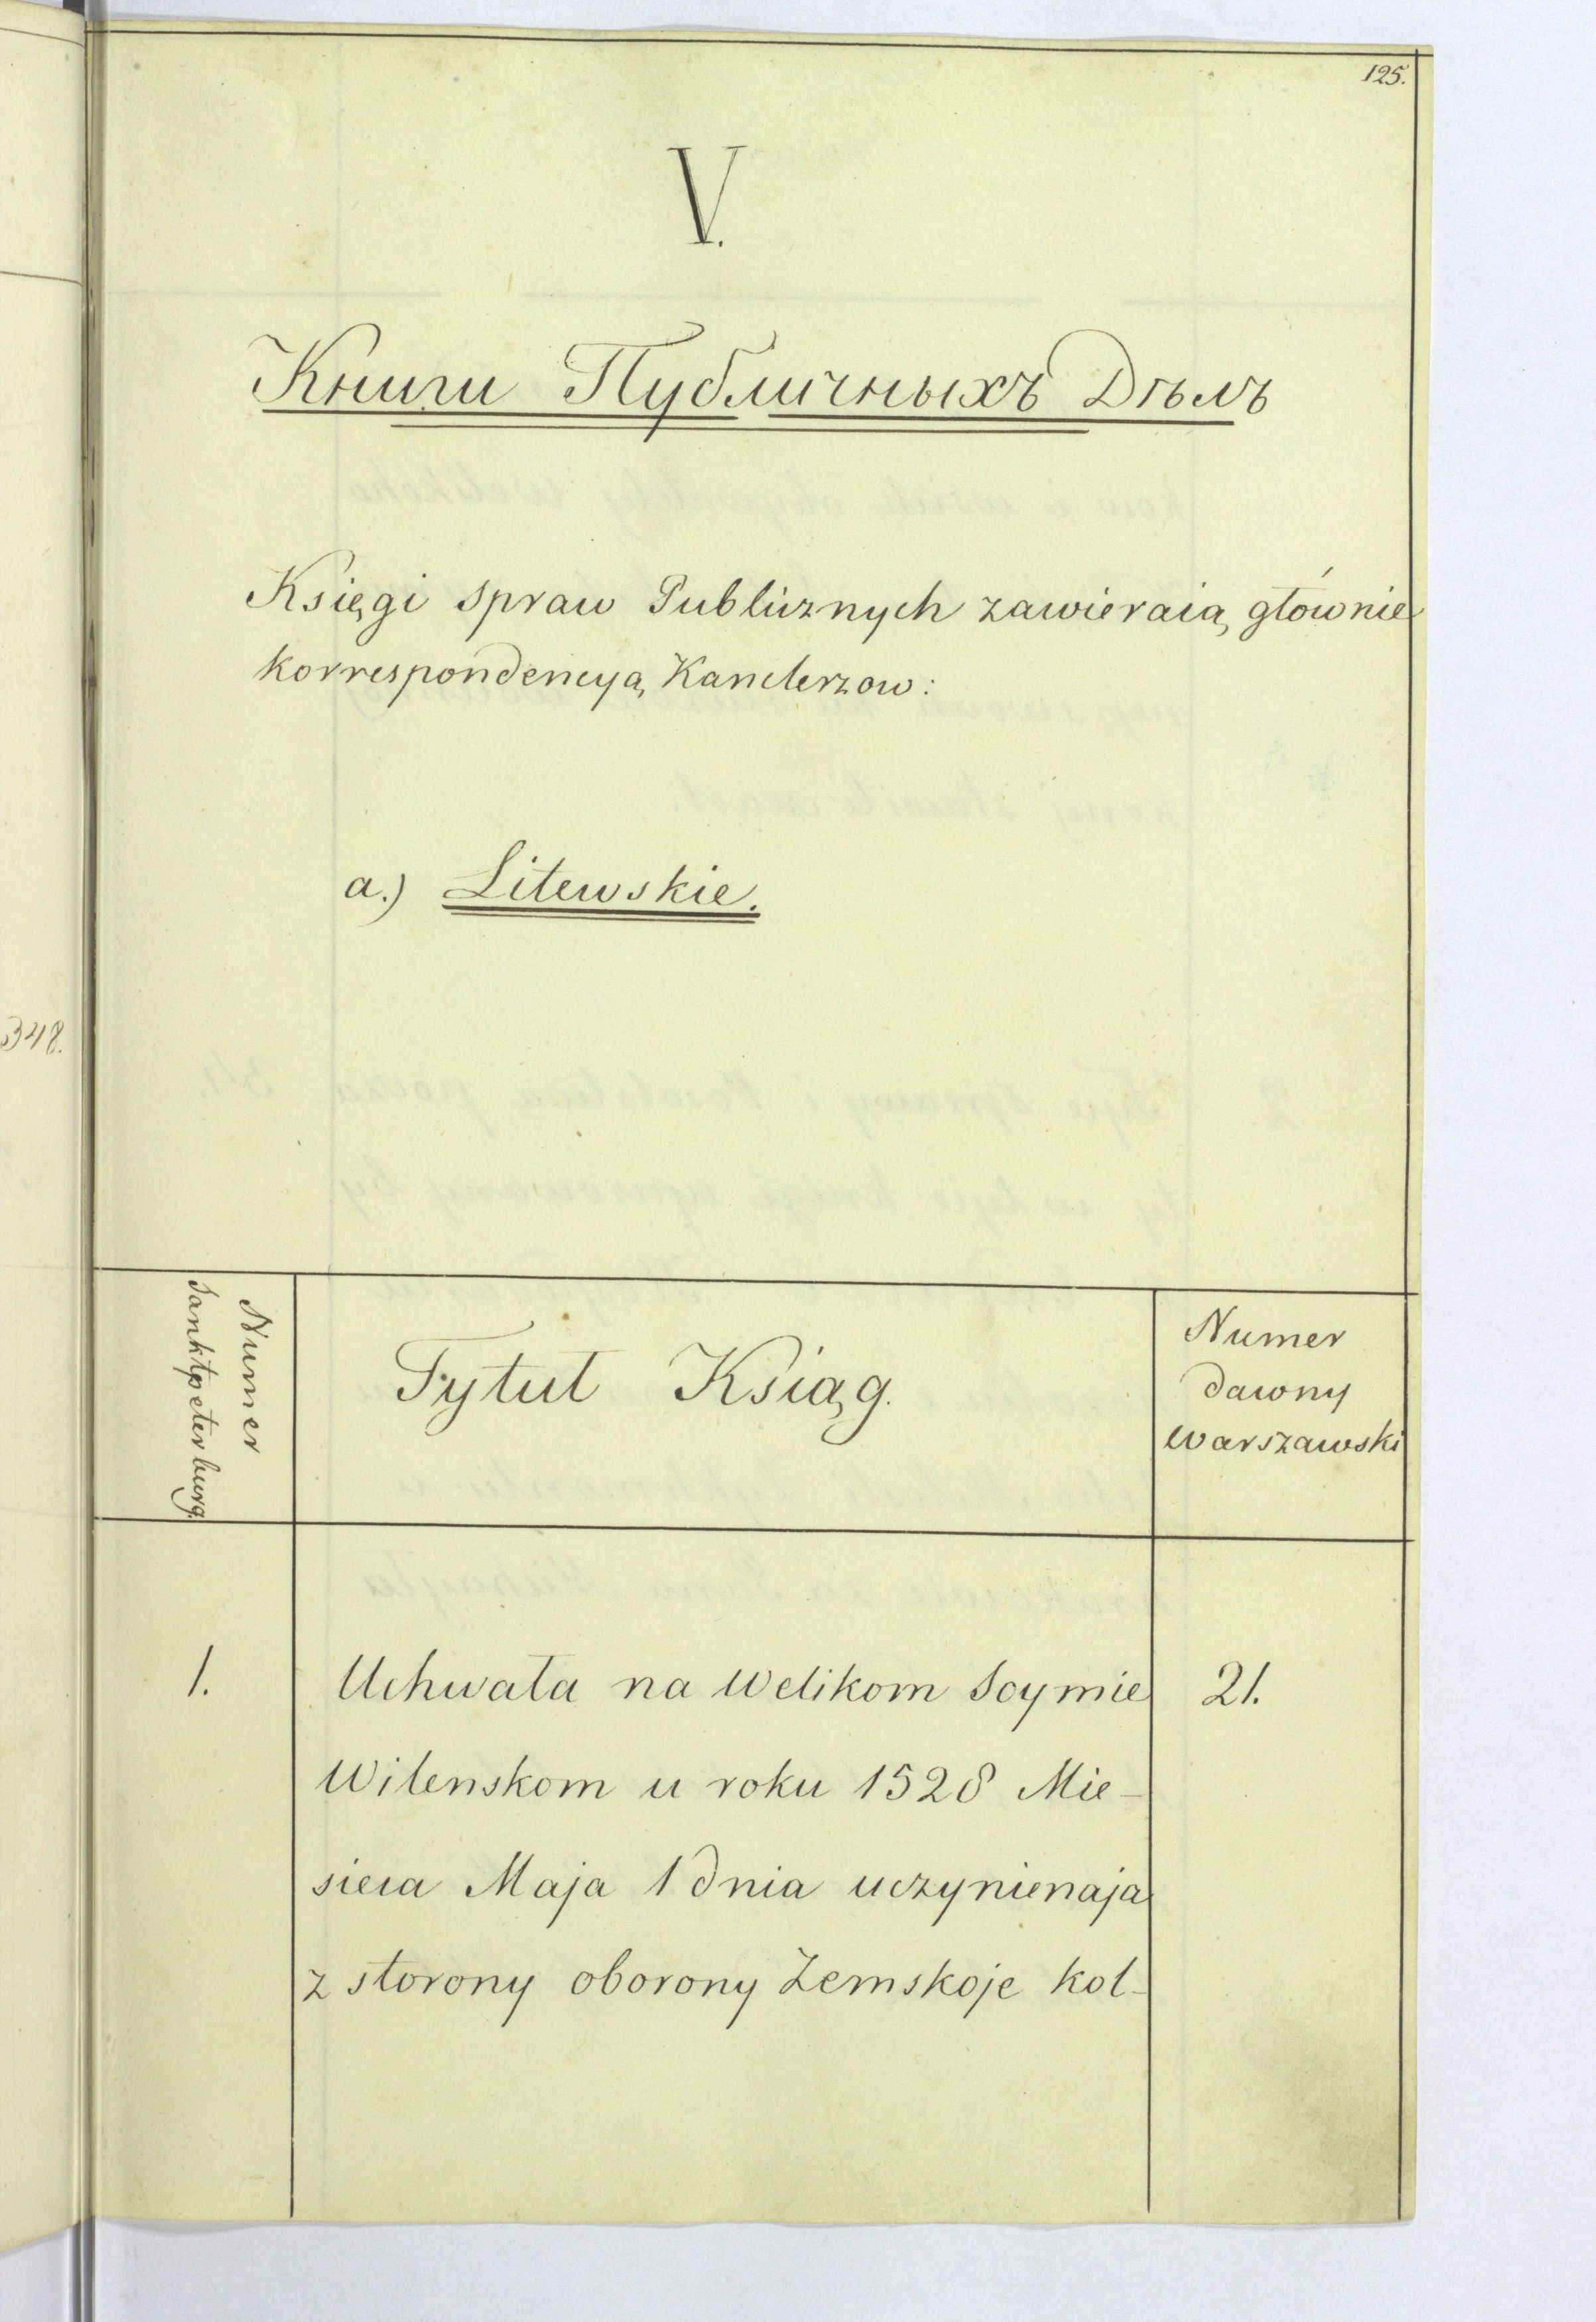 348.
125.
V.
Книги Публичныхъ Дѣлъ
Księgi Spraw Publicznych zawieraią głównie
korrespondencyą Kanclerzow:
a.) Litewskie.
Numer
Sanktpeterburg.
Tytuł Ksiąg.
Numer
dawny
Warszawski
1.
Uchwała na Welikom Soymie
21.
Wilenskom u roku 1528 Mie-
sieca Maja 1 dnia uczynienaja
z storony oborony Zemskoje kol-